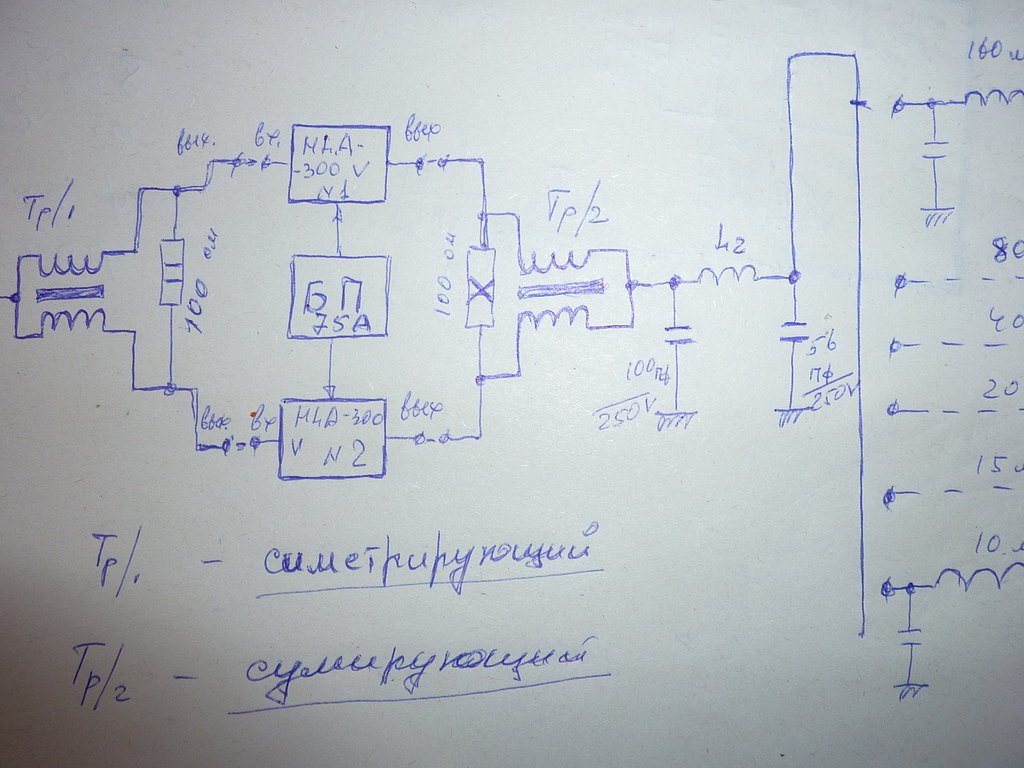 160 м
вых.
вх.
вых
HLA-
-300 V
N1
Тр/1
Тр/2
100 ом
100 ом
80
L2
БП
75А
40
56
пф
250V
100пф
250V
20
вых.
вх
вых
HLA-300
V
N2
15 м
10 м
Тр/1 - симетрирующий
Тр/2 - сумирующий